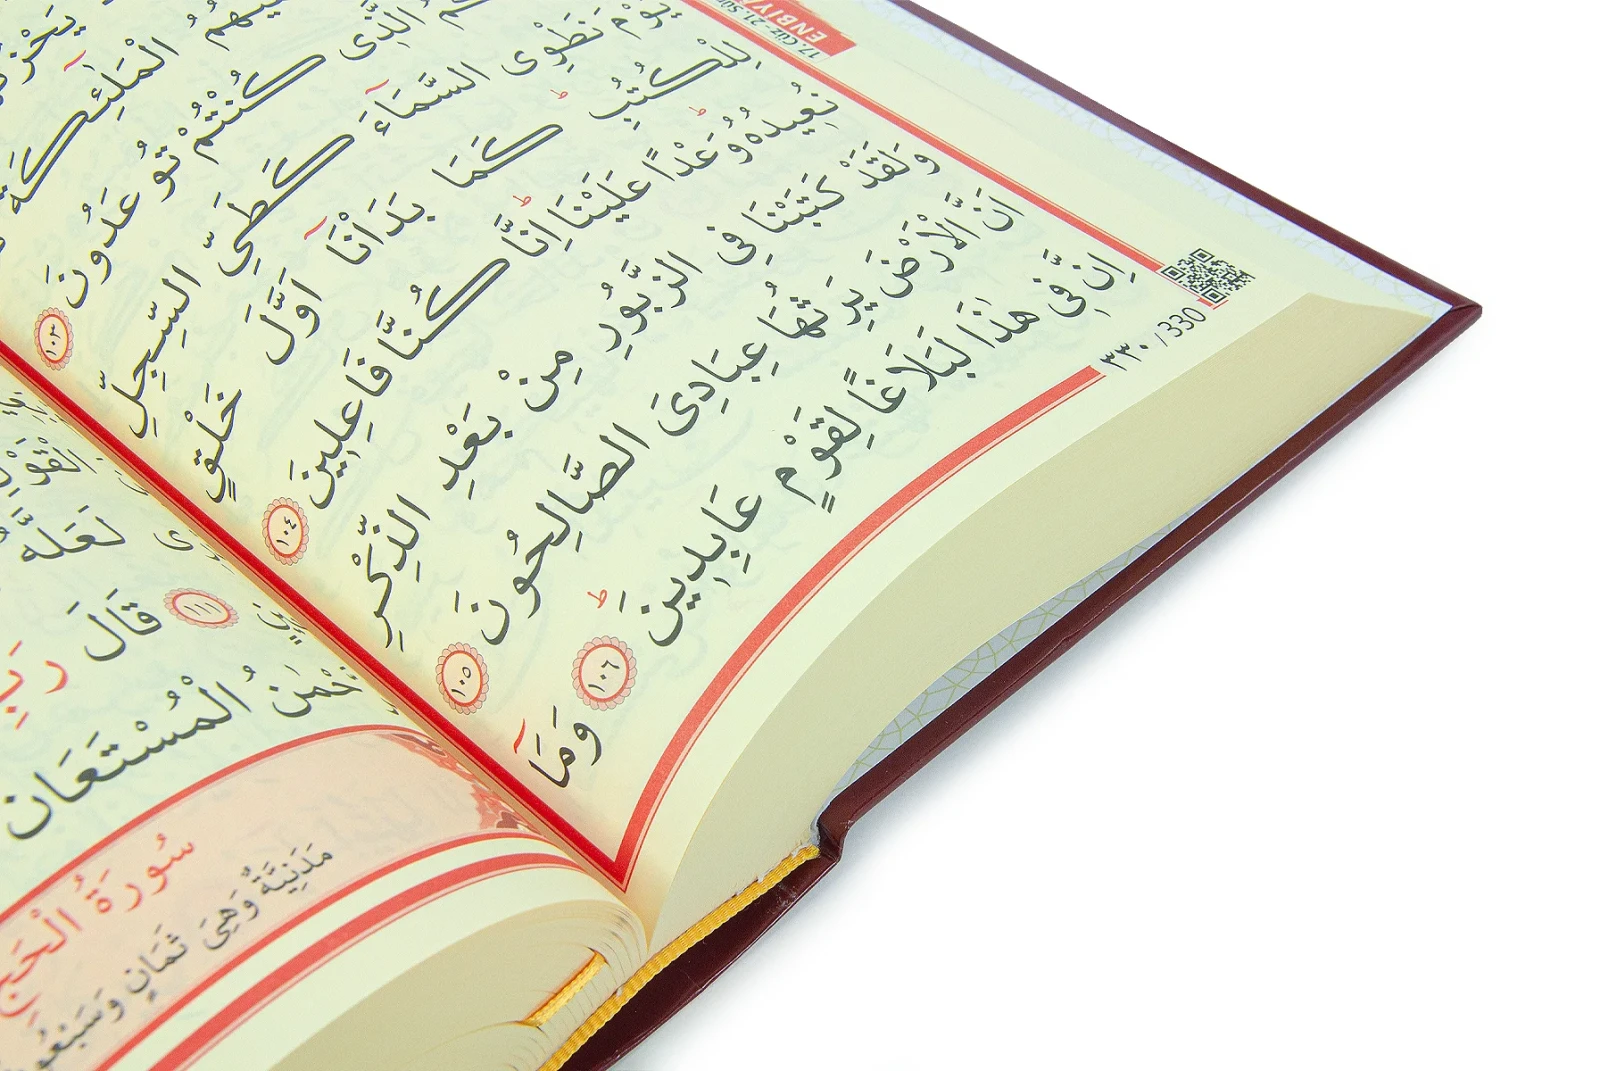 17.Cüz-21.Sûr
ENBİY
الْمَلٰٓئِكَةُ
الَّذ۪ى كُنْتُمْ تُوعَدُونَ ١٠٣
نَطْوِى السَّمَٓاءَ كَطَىِّ السِّجِلِّ
لِلْكُتُبِ كَمَا بَدَاْنَٓا اَوَّلَ خَلْقٍ
نُع۪يدُهُ وَعْدًا عَلَيْنَا اِنَّا كُنَّا فَاعِل۪ينَ ١٠٤
وَلَقَدْ كَتَبْنَا فِى الزَّبُورِ مِنْ بَعْدِ الذِّكْرِ
اَنَّ الْاَرْضَ يَرِثُهَا عِبَادِىَ الصَّالِحُونَ ١٠٥
اِنَّ ف۪ى هٰذَا لَبَلَاغًا لِقَوْمٍ عَابِد۪ينَ ١٠٦ وَمَٓا
٣٣٠ / 330
لَعَلَّهُ
١١١ قَالَ رَبِّ
الْمُسْتَعَانُ
سُورَةُ الْحَجِّ
مَدَنِيَّةٌ وَهِىَ ثَمَانٍ وَسَبْعُونَ